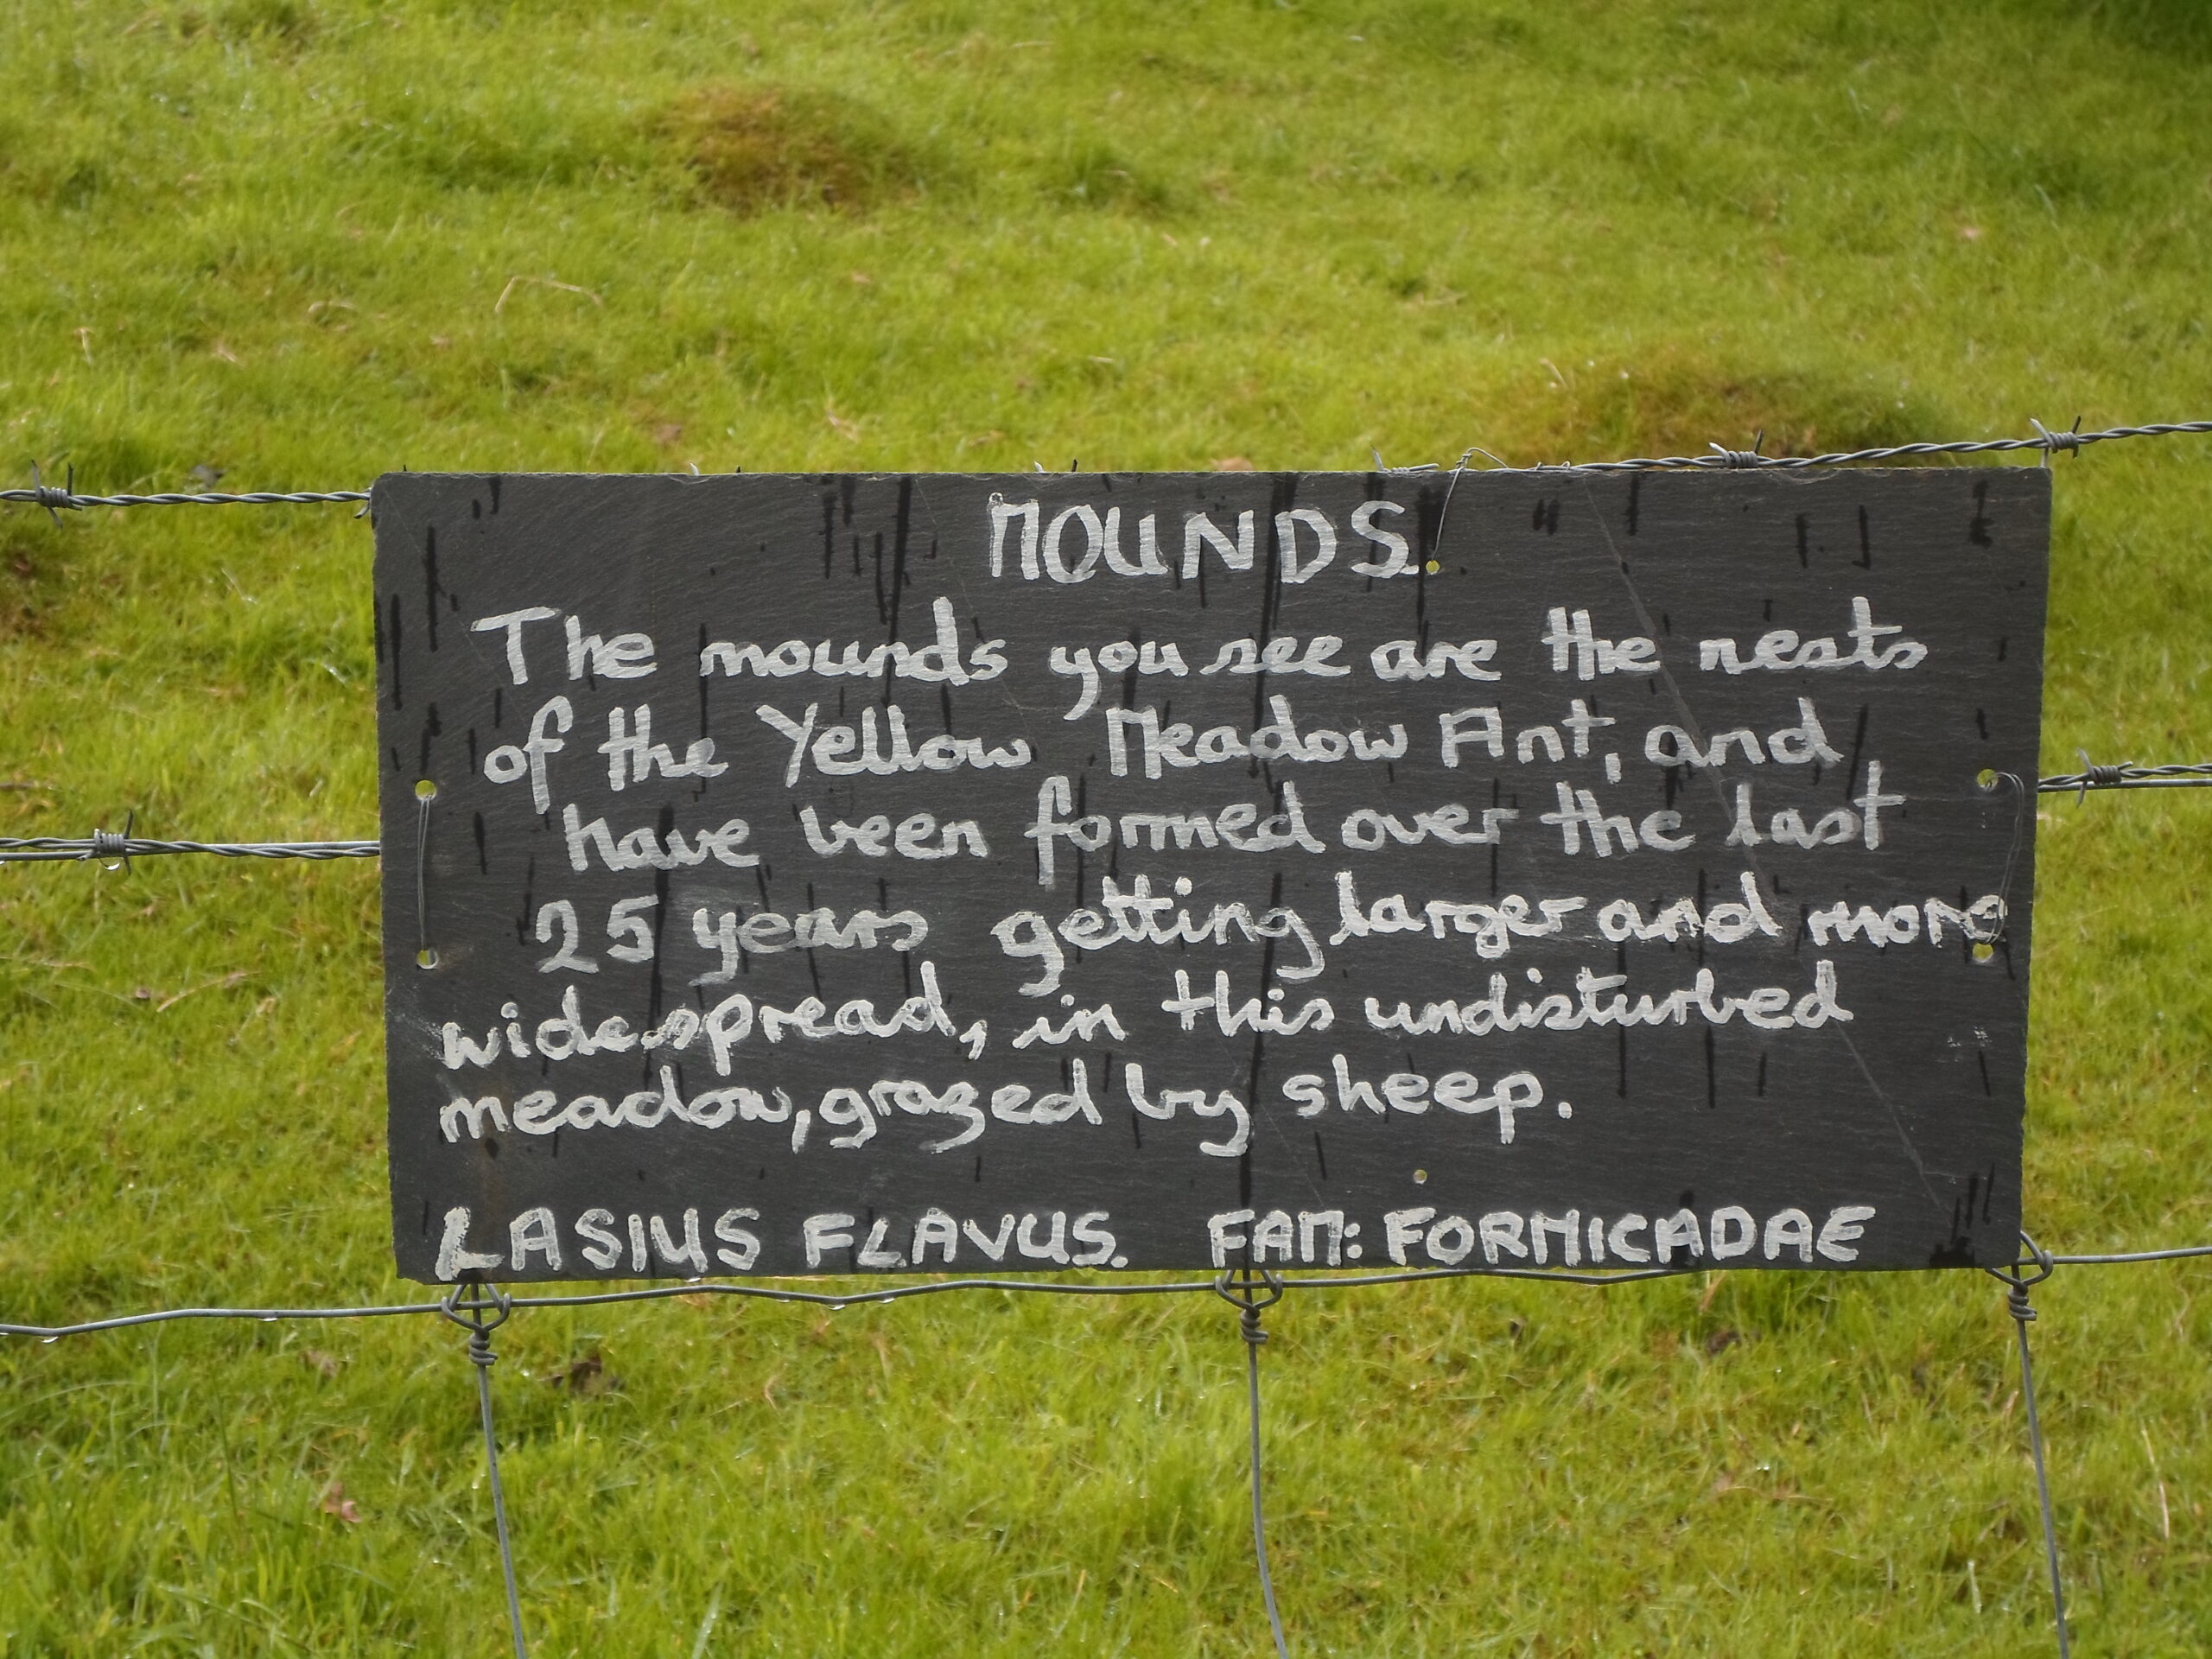 MOUNDS.
The mounds you see are the nests
of the Yellow Meadow Ant, and
have been formed over the last
25 years getting larger and more
widespread, in this undisturbed
meadow, grazed by sheep.
LASIUS FLAVUS. FAM: FORMICADAE